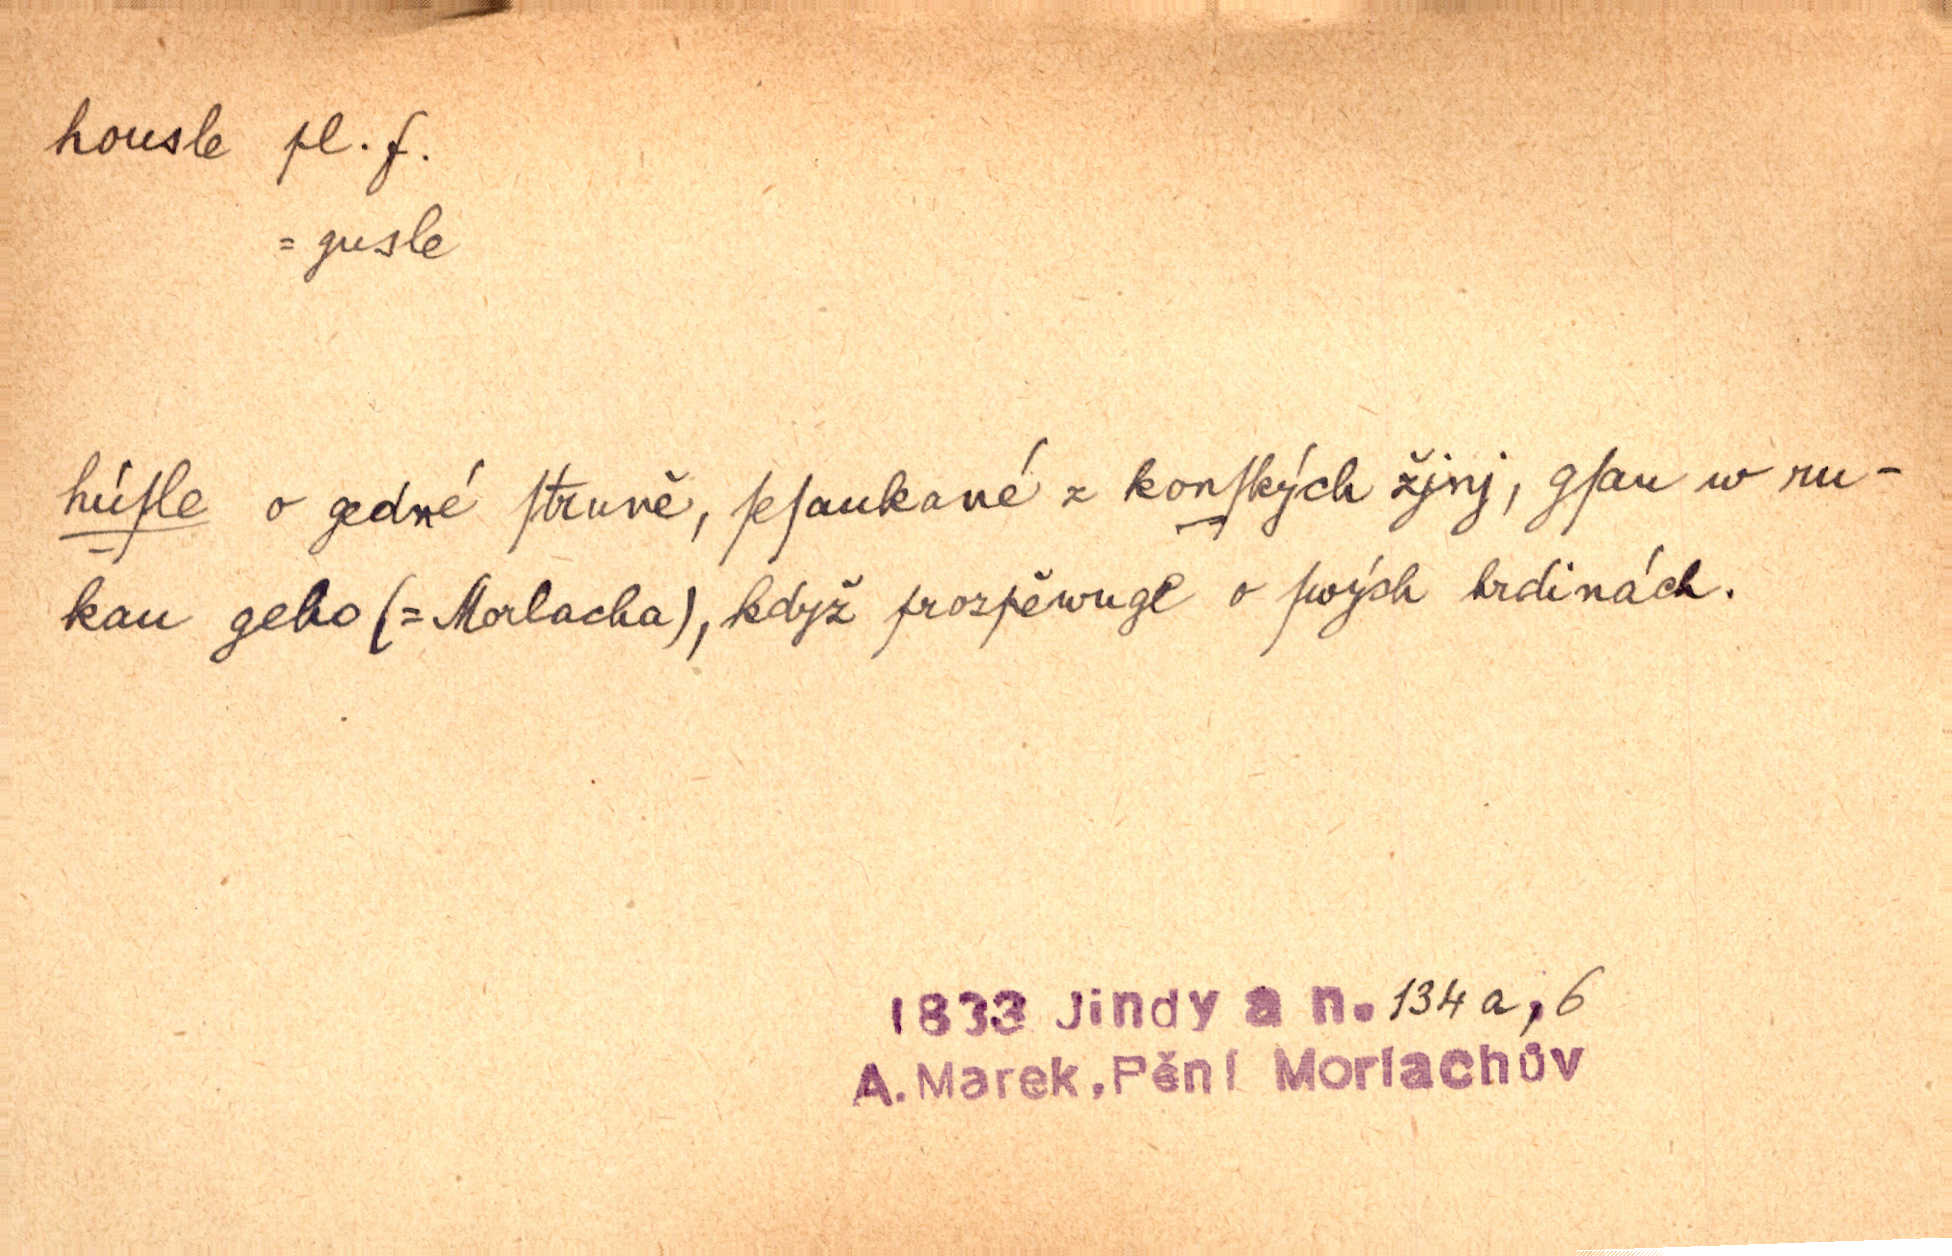 housle pl. f.
= gusle
húſle o gedné ſtruně, ſeſaukané z konſkých žjnj, gſau w ru-
kau geho (= Morlacha), když prozpěwuge o ſwých hrdinách.
1833 Jindy a n. 134 a, 6
A. Marek, Pění Morlachův